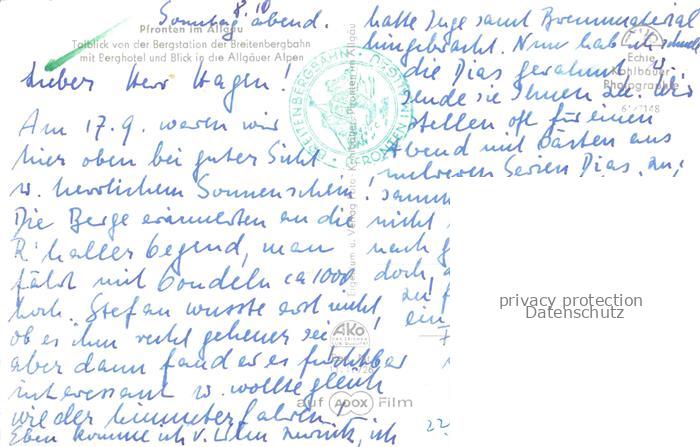 Sonntag abend. 8.10
Pfronten im Allgäu
Talblick von der Bergstation der Breitenbergbahn
mit Berghotel und Blick in die Allgäuer Alpen
Lieber Herr Hagen!
Am 17.9. waren wir
hier oben bei guter Sicht
u. herrlichem Sonnenschein!
Die Berge erinnerten an die
R'haller Gegend, man
fährt mit Gondeln ca 1000
hoch. Stefan wusste erst nicht,
ob es ihm recht geheuer sei
aber dann fand er es furchtbar
interessant u. wollte gleich
wieder hinunterfahren!
Eben komme ich v. Ulm zurück, ich
hatte Inge samt Brennmaterial
hingebracht. Nun hab ich schnell
die Dias gerahmt u.
sende sie Ihnen zu. Wir
stellen oft für einen
Abend mit Gästen aus
mehreren Serien Dias
nicht
nach
doch,
BREITENBERGBAHN
PFRONTEN IM
Echte
Kohlbauer
Photographie
AKO
auf ADOX Film
22
privacy protection
Datenschutz